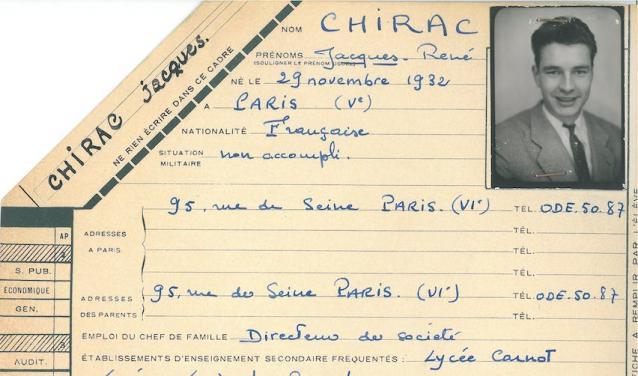 NOM CHIRAC
PRÉNOMS Jacques-René
(SOULIGNER LE PRÉNOM
CHIRAC Jacques.
NE RIEN ÉCRIRE DANS CE CADRE
NÉ LE 29 novembre 1932
A PARIS (Ve)
NATIONALITÉ Française
SITUATION MILITAIRE non accompli.
95, rue de Seine PARIS. (VIe) TÉL. ODE.50.87
ADRESSES A PARIS
TÉL.
TÉL.
TÉL.
ADRESSES DES PARENTS
95, rue de Seine PARIS. (VIe) TÉL. ODE.50.87
TÉL.
EMPLOI DU CHEF DE FAMILLE Directeur de société
ÉTABLISSEMENTS D'ENSEIGNEMENT SECONDAIRE FRÉQUENTÉS : Lycée Carnot
AP
S. PUB.
ÉCONOMIQUE
GEN.
AUDIT.
FICHE A REMPLIR PAR L'ÉLÈVE